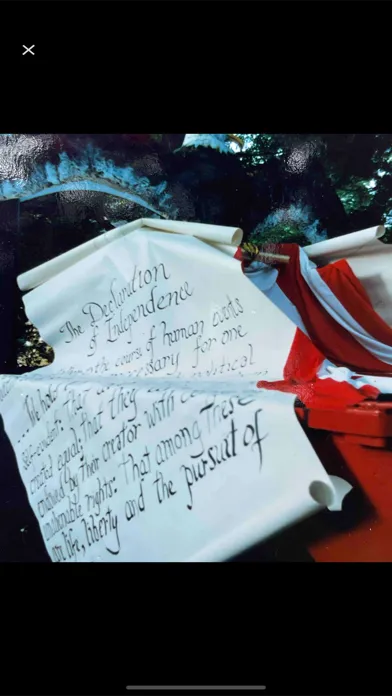 The Declaration
of Independence
the course of human
necessary for one
political
We hold
self-evident: That
created equal: that they
endowed by their creator with
unalienable rights: That among these
are life, liberty and the pursuit of